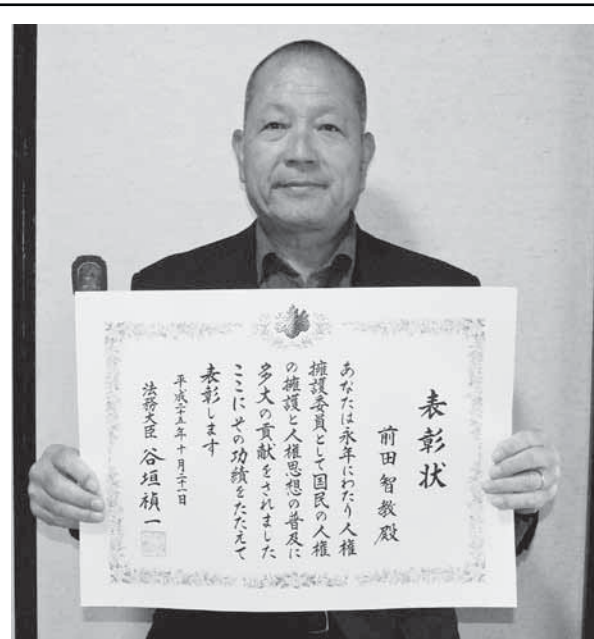 表彰状
前田智教殿
あなたは永年にわたり人権
擁護委員として国民の人権
の擁護と人権思想の普及に
多大の貢献をされました
ここにその功績をたたえて
表彰します
平成二十五年十月二十一日
法務大臣 谷垣禎一